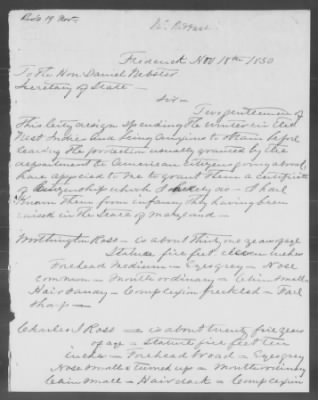 Rec'd 19 Nov.
Frederick Nov 18th 1850
To The Hon. Daniel Webster
Secretary of State—
Sir—
Two gentlemen of
This City design spending the winter in the
West Indies And being anxious to obtain before
leaving the protection usually granted by the
department to American citizens going abroad,
have applied to me to grant them a certificate
of citizenship which I do — I had
known them from infancy they having been
raised in the State of Maryland—
Worthington Ross — is about thirty one years of age
Stature five feet eleven inches
Forehead Medium — Eyes grey — Nose
common — Mouth ordinary — Chin small
Hair Sandy — Complexion freckled — Face
sharp—
Charles J Ross — is about twenty five years
of age — Stature five feet ten
inches — Forehead broad — Eyes grey
Nose small & turned up — Mouth ordinary
Chin small — Hair dark — Complexion